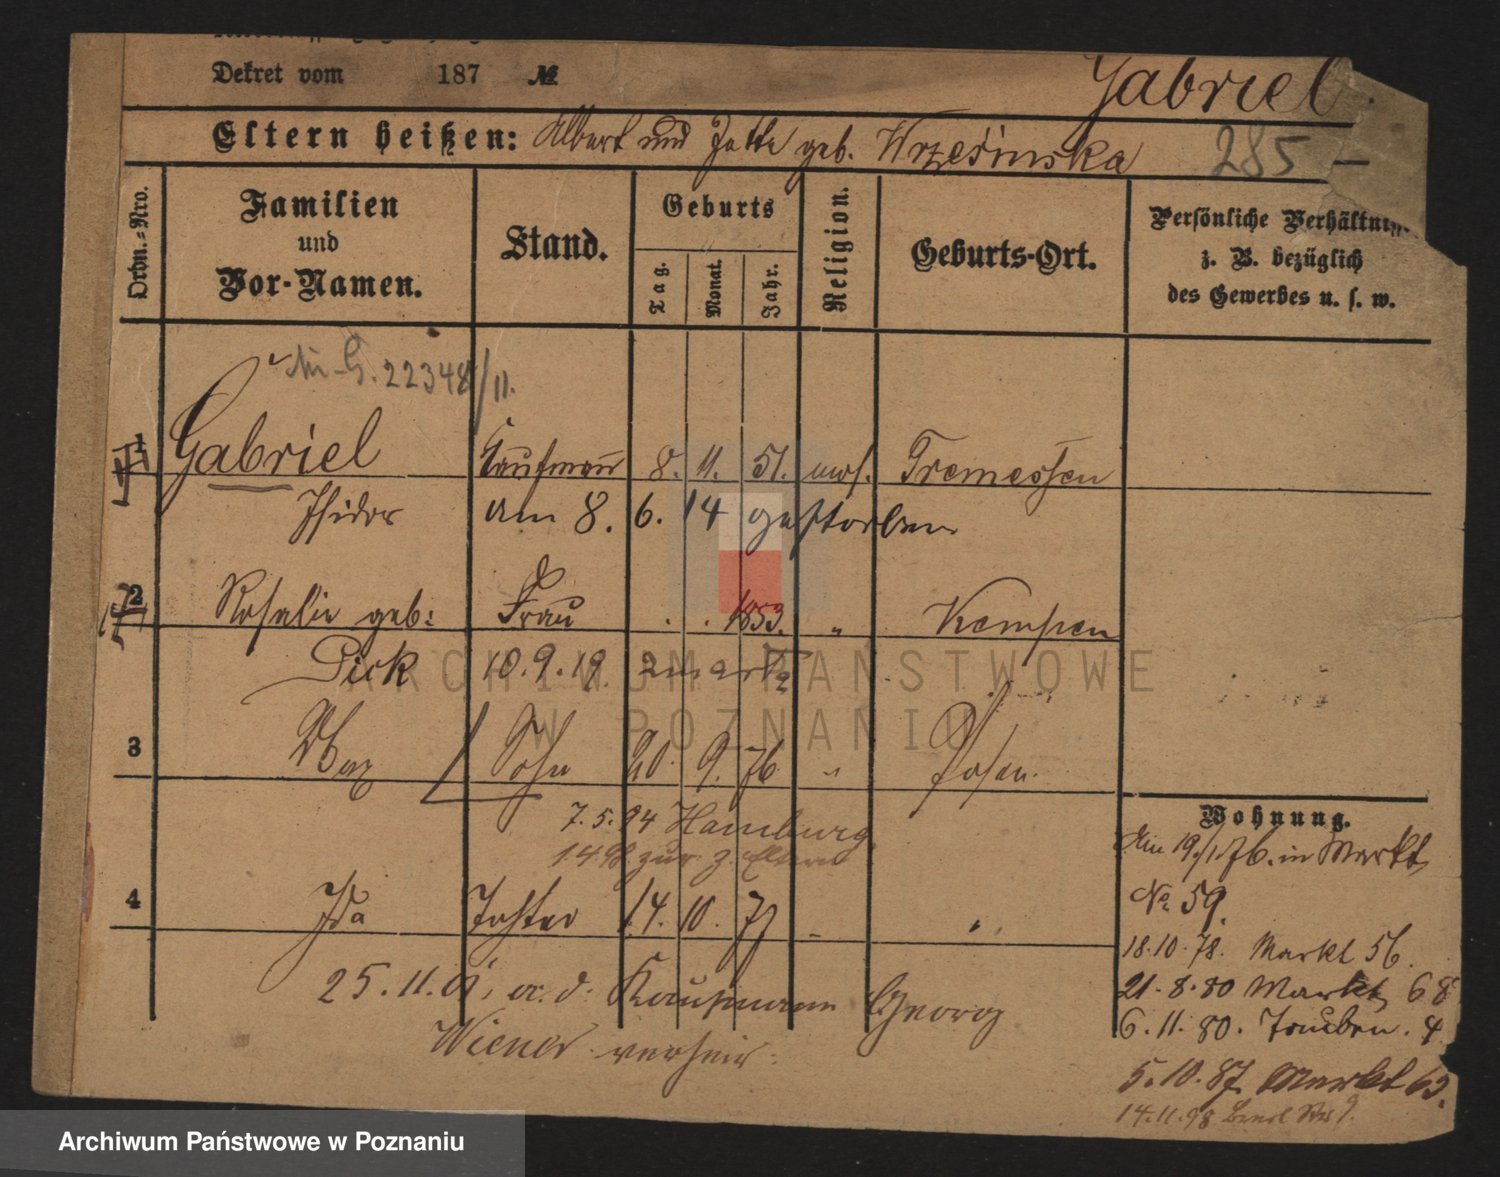 Dekret vom 187 №
Gabriel.
Eltern heißen: Albert und Jette geb. Wrzesinska
285 —
Ordn.-Nro.
Familien und Vor-Namen.
Stand.
Geburts
Tag.
Monat.
Jahr.
Religion.
Geburts-Ort.
Persönliche Verhältniss.
z. B. bezüglich
des Gewerbes u. s. w.
G. 22348/11.
1 Gabriel Kaufmann 8. 11. 51. mos. Tremessen
Isidor am 8. 6. 14 gestorben
2 Rosalie geb: Frau . . 1853. " Kempen
Pick 10.9.19
3 Max Sohn 20. 9. 76 " Posen.
7.5.94 Hamburg
zur. z. Eltern
4 Ida Tochter 14. 10. 77 " "
25.11.01, a. d. Kaufmann Georg
Wiener verheir.
Wohnung.
Am 19/1.76. in Markt
No. 59.
18.10.78. Markt 56.
21.8.80 Markt 68
6.11.80. Tauben. 4
5.10.87. Markt 63.
14.11.98
ARCHIWUM PAŃSTWOWE
W POZNANIU
Archiwum Państwowe w Poznaniu